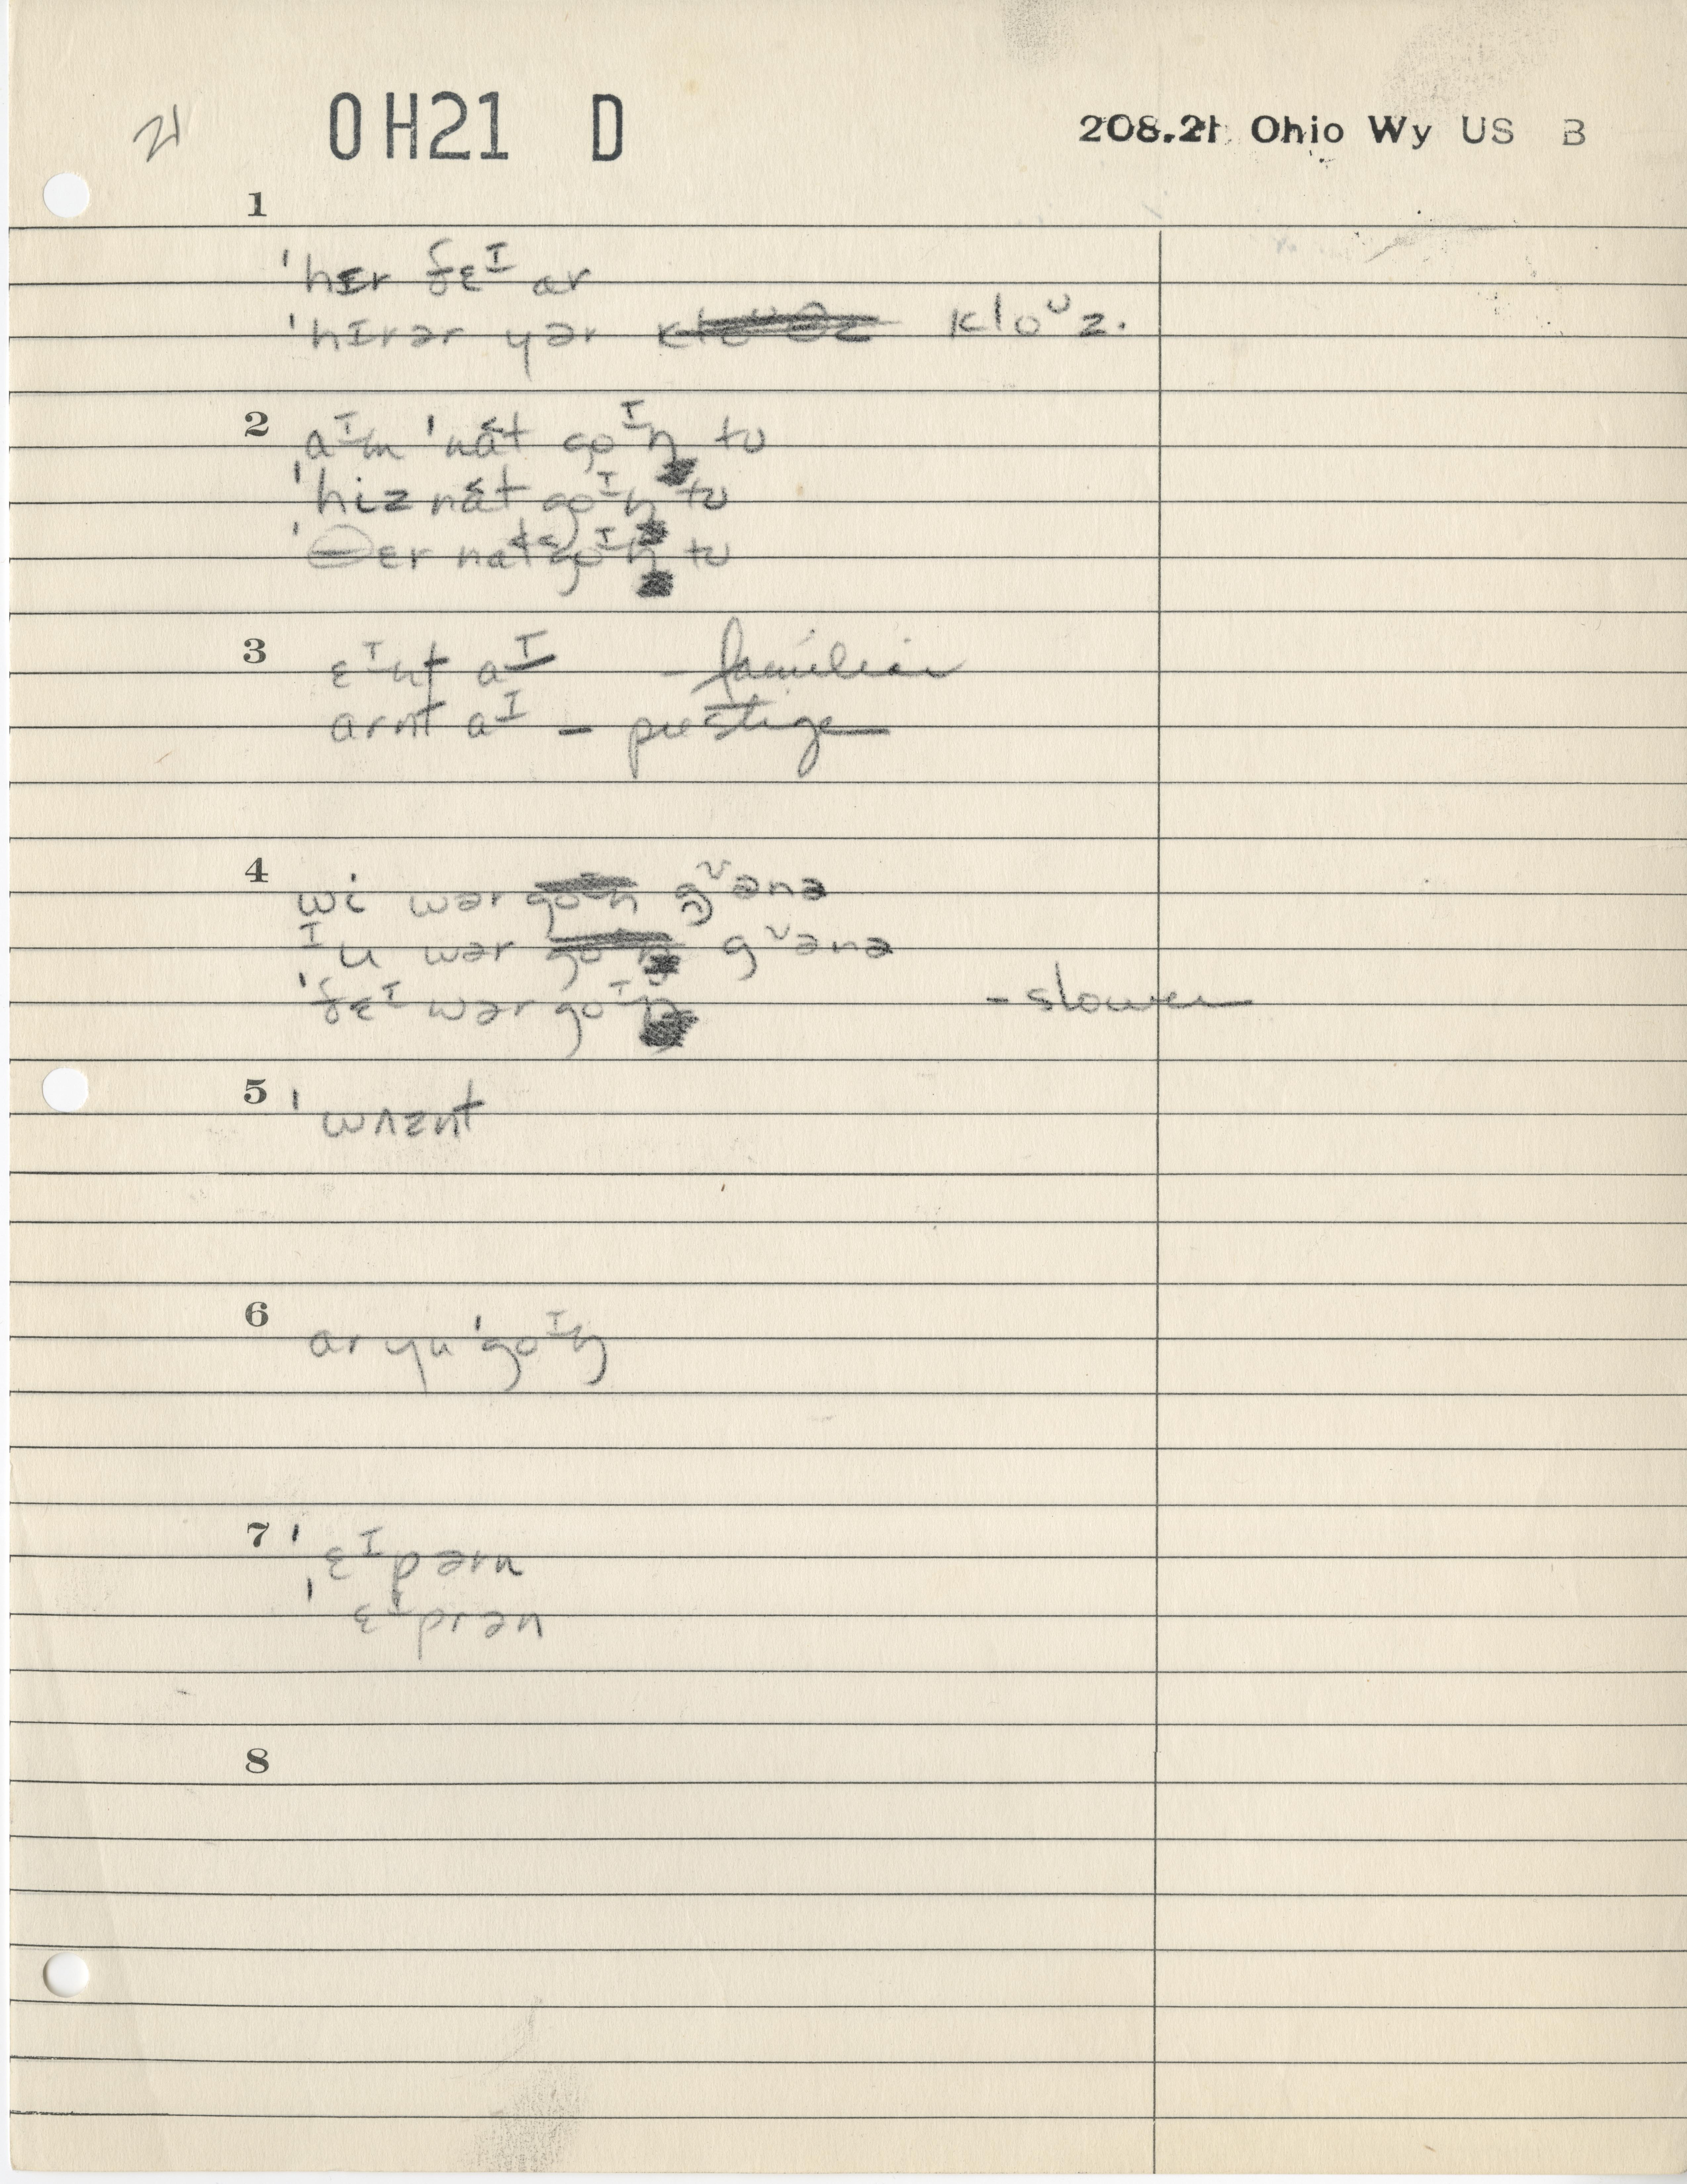 21 OH21 D 208.21 Ohio Wy US B
1
ˈhɛr ðɛᴵ ar
ˈhɪrər yər kloᶷz.
2 aᴵm ˈnát goᴵŋ tʊ
ˈhiz nát goᴵŋ tʊ
ˈðɛr nat goᴵŋ tʊ
3 ɛᴵnt aᴵ – familiar
arnt aᴵ – prestige
4 wi wər gᶷənə
ᴵu wər gᶷənə
ˈðɛᴵ wər goᴵŋ – slower
5 ˈwʌznt
6 ar yu ˈgoᴵŋ
7 ˈɛᴵpərn
ˈɛᴵprən
8